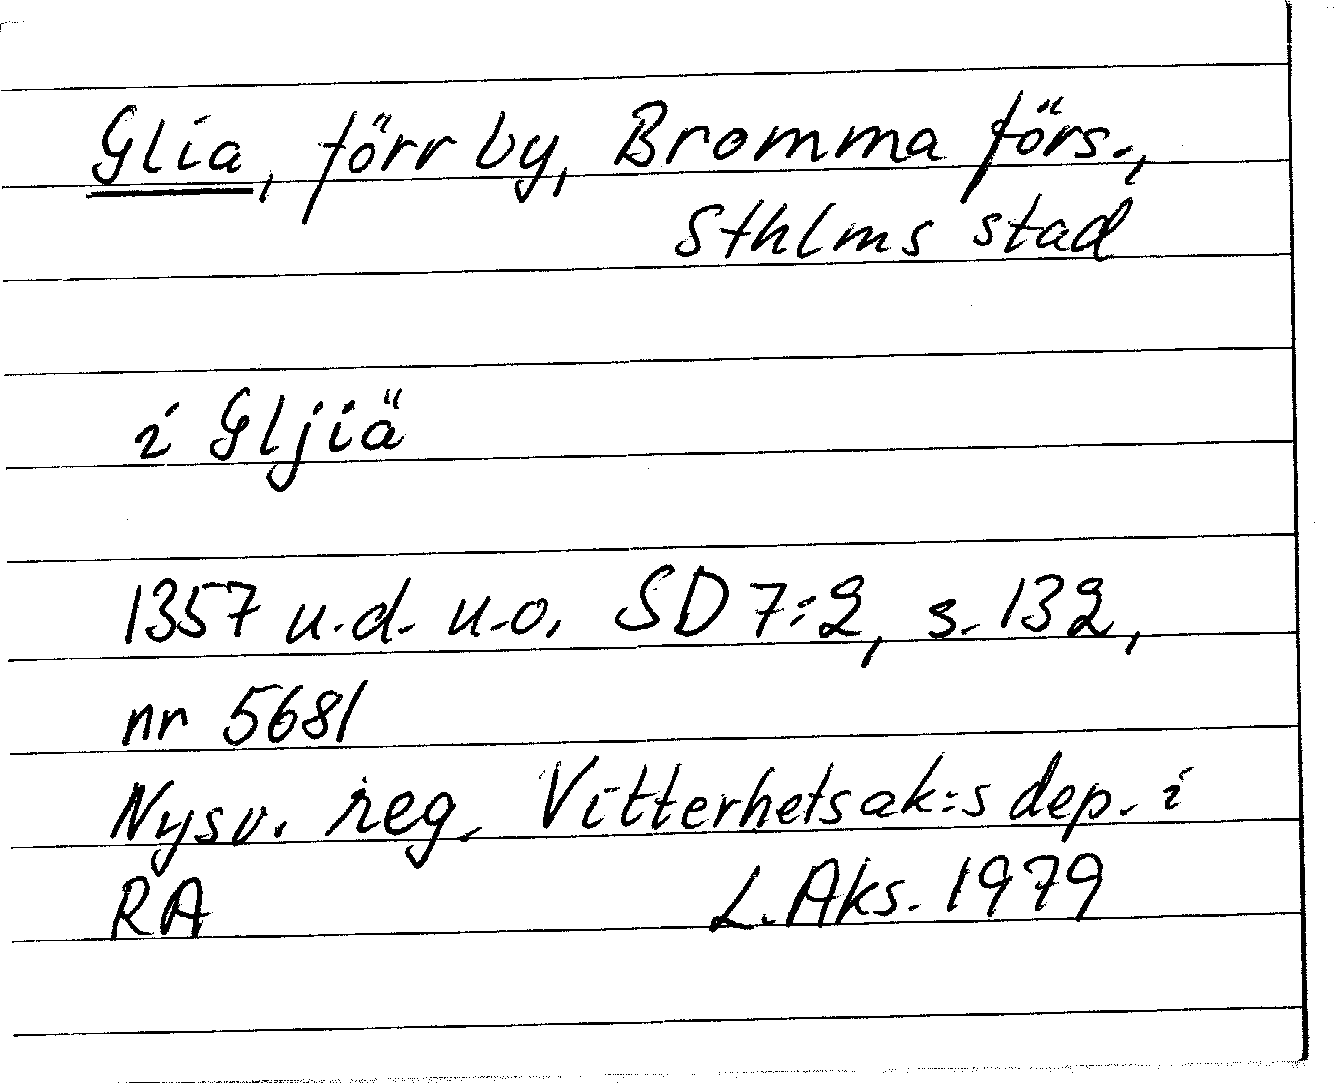 Glia, förr by, Bromma förs.,
Sthlms stad
i Gljiä
1357 u.d. u.o. SD 7:2, s. 132,
nr 5681
Nysv. reg. Vitterhetsak:s dep. i
RA L. Aks. 1979